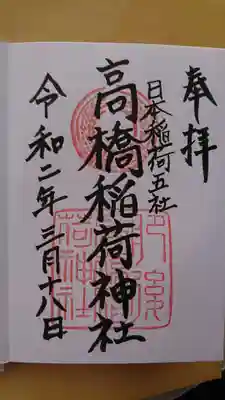 奉拝
日本稲荷五社
高橋稲荷神社
令和二年三月十八日